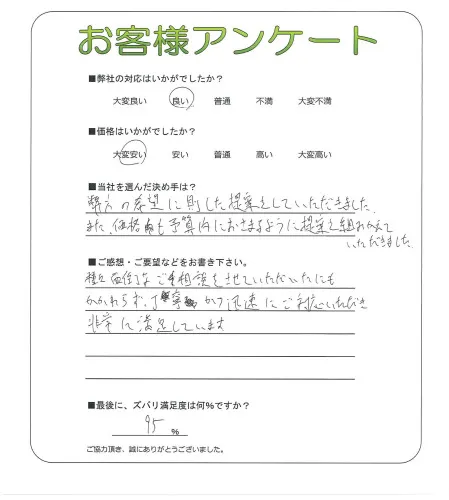 お客様アンケート
■弊社の対応はいかがでしたか？
大変良い 良い 普通 不満 大変不満
■価格はいかがでしたか？
大変安い 安い 普通 高い 大変高い
■当社を選んだ決め手は？
弊方の希望に則した提案をしていただきました。
また、価格面も予算内におさまるように提案を組みかえて
いただきました
■ご感想・ご要望などをお書き下さい。
種々面倒なご相談をさせていただいたにも
かかわらず、丁寧かつ迅速にご対応いただき
非常に満足しています
■最後に、ズバリ満足度は何％ですか？
95 ％
ご協力頂き、誠にありがとうございました。